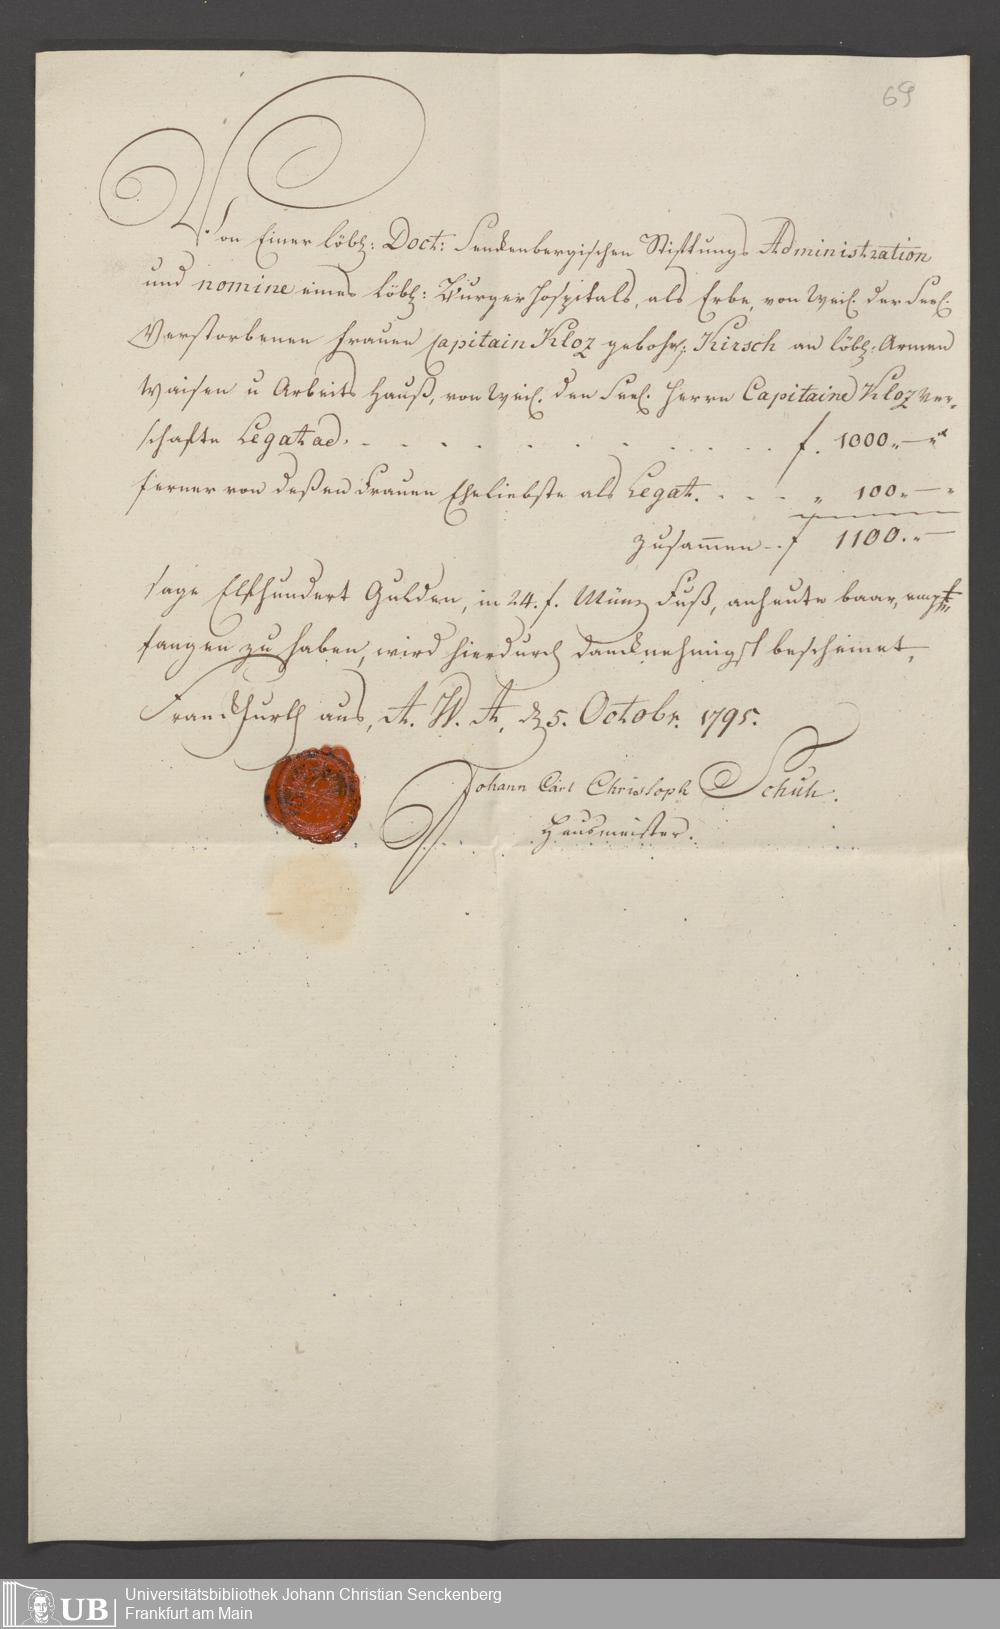 69
Von Einer löbl: Doct: Senckenbergischen Stiftungs Administration
und nomine eines Löbl: Burger Hospitals, als Erbe, von Weil. der Seel.
Verstorbenen Frauen Capitain Kloz gebohr: Kirsch an löbl: Armen
Waisen u Arbeits Hauß, von Weil. den Seel. Herrn Capitaine Kloz ver-
schafte Legat ad. . . . . . . . . . . . . f. 1000.„—„
ferner von deßen Frauen Eheliebste als Legat. . . . . „ 100„—„
zusam̅en –. f 1100.„—
sage Elfhundert Gulden, in 24. f. Münz Fuß, anheute baar, empf-
fangen zu haben, wird hierdurch dancknehmigst bescheinet,
Franckfurth aus, A. W. A. d 5. Octobr. 1795.
Johann Carl Christoph Schuh.
Hausmeister.
UB
Universitätsbibliothek Johann Christian Senckenberg
Frankfurt am Main